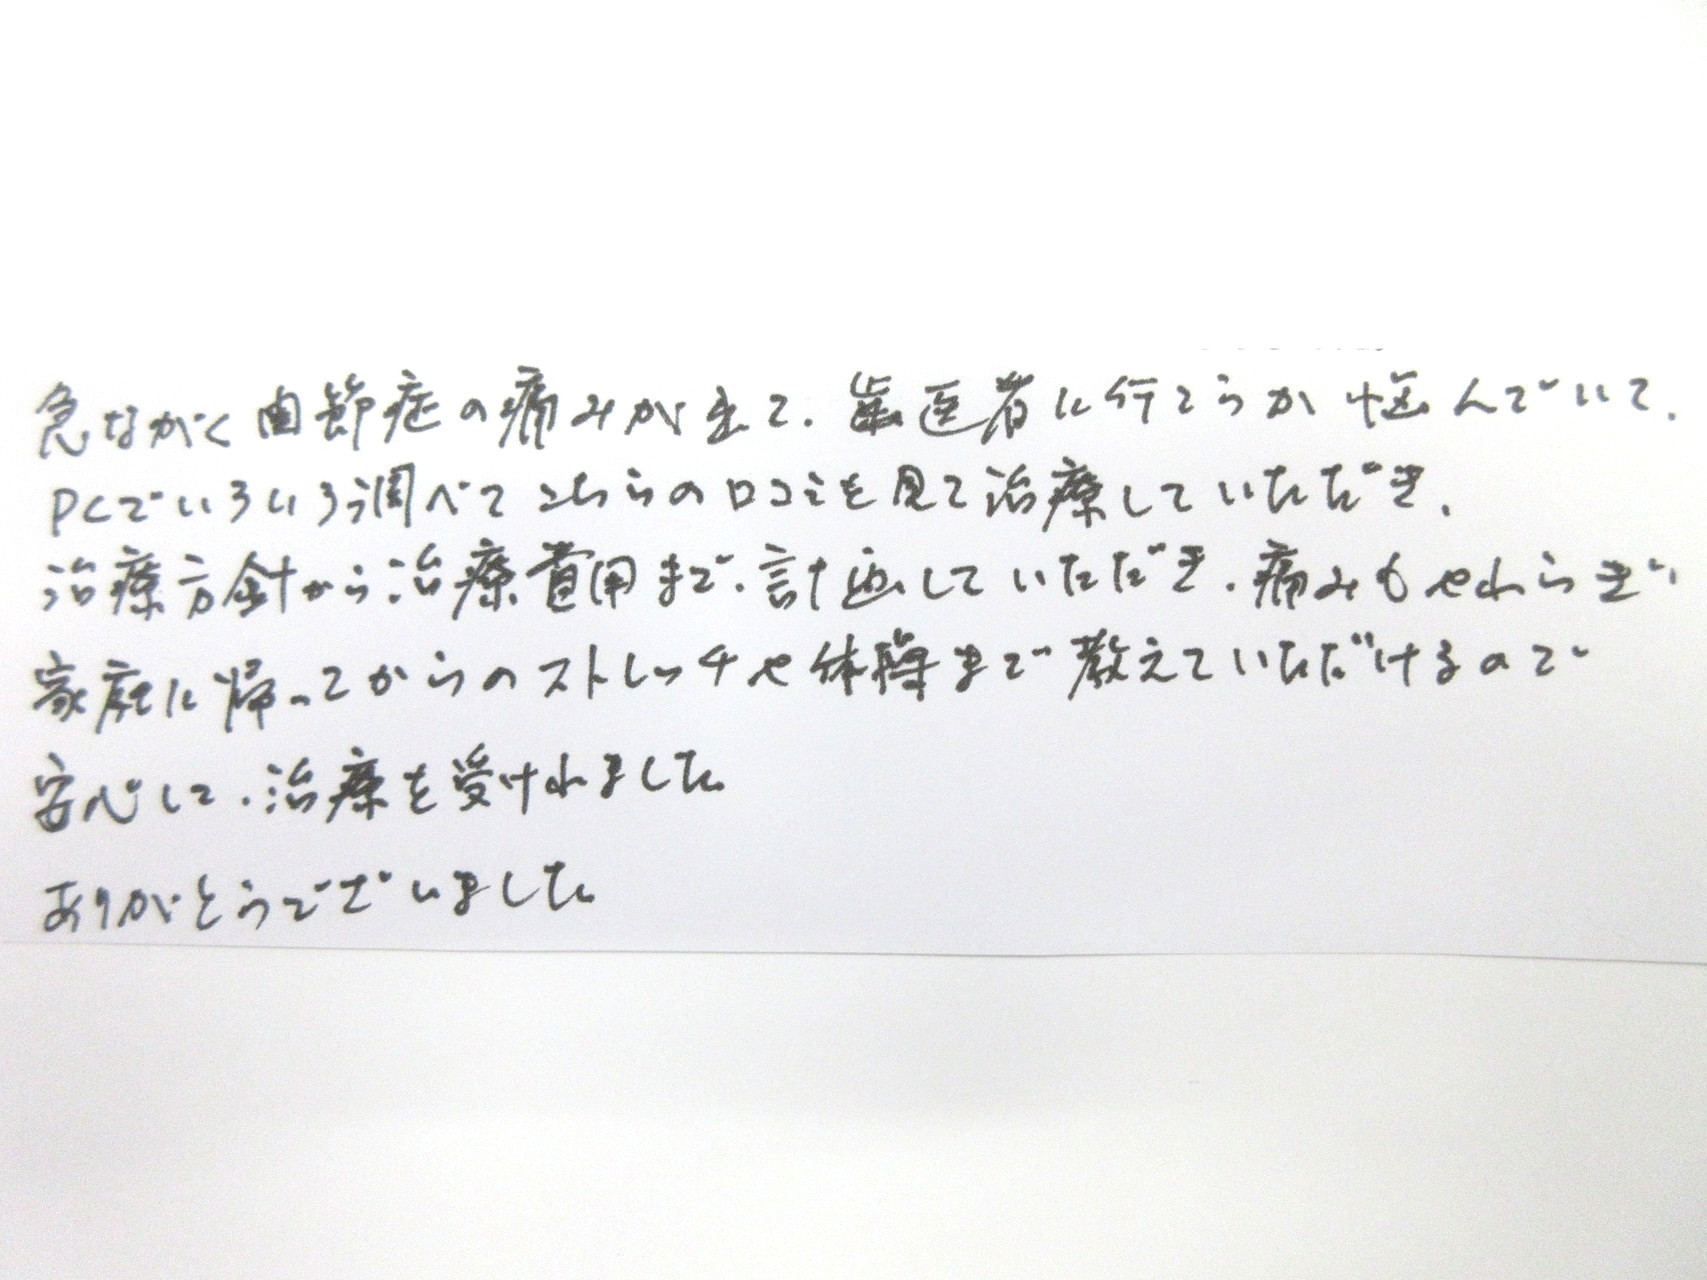 急ながく関節症の痛みが出て、歯医者に行こうか悩んでいて、
PCでいろいろ調べてこちらの口コミを見て治療していただき、
治療方針から治療費用まで、計画していただき、痛みもやわらぎ、
家庭に帰ってからのストレッチや体操まで教えていただけるので
安心して、治療を受けれました
ありがとうございました